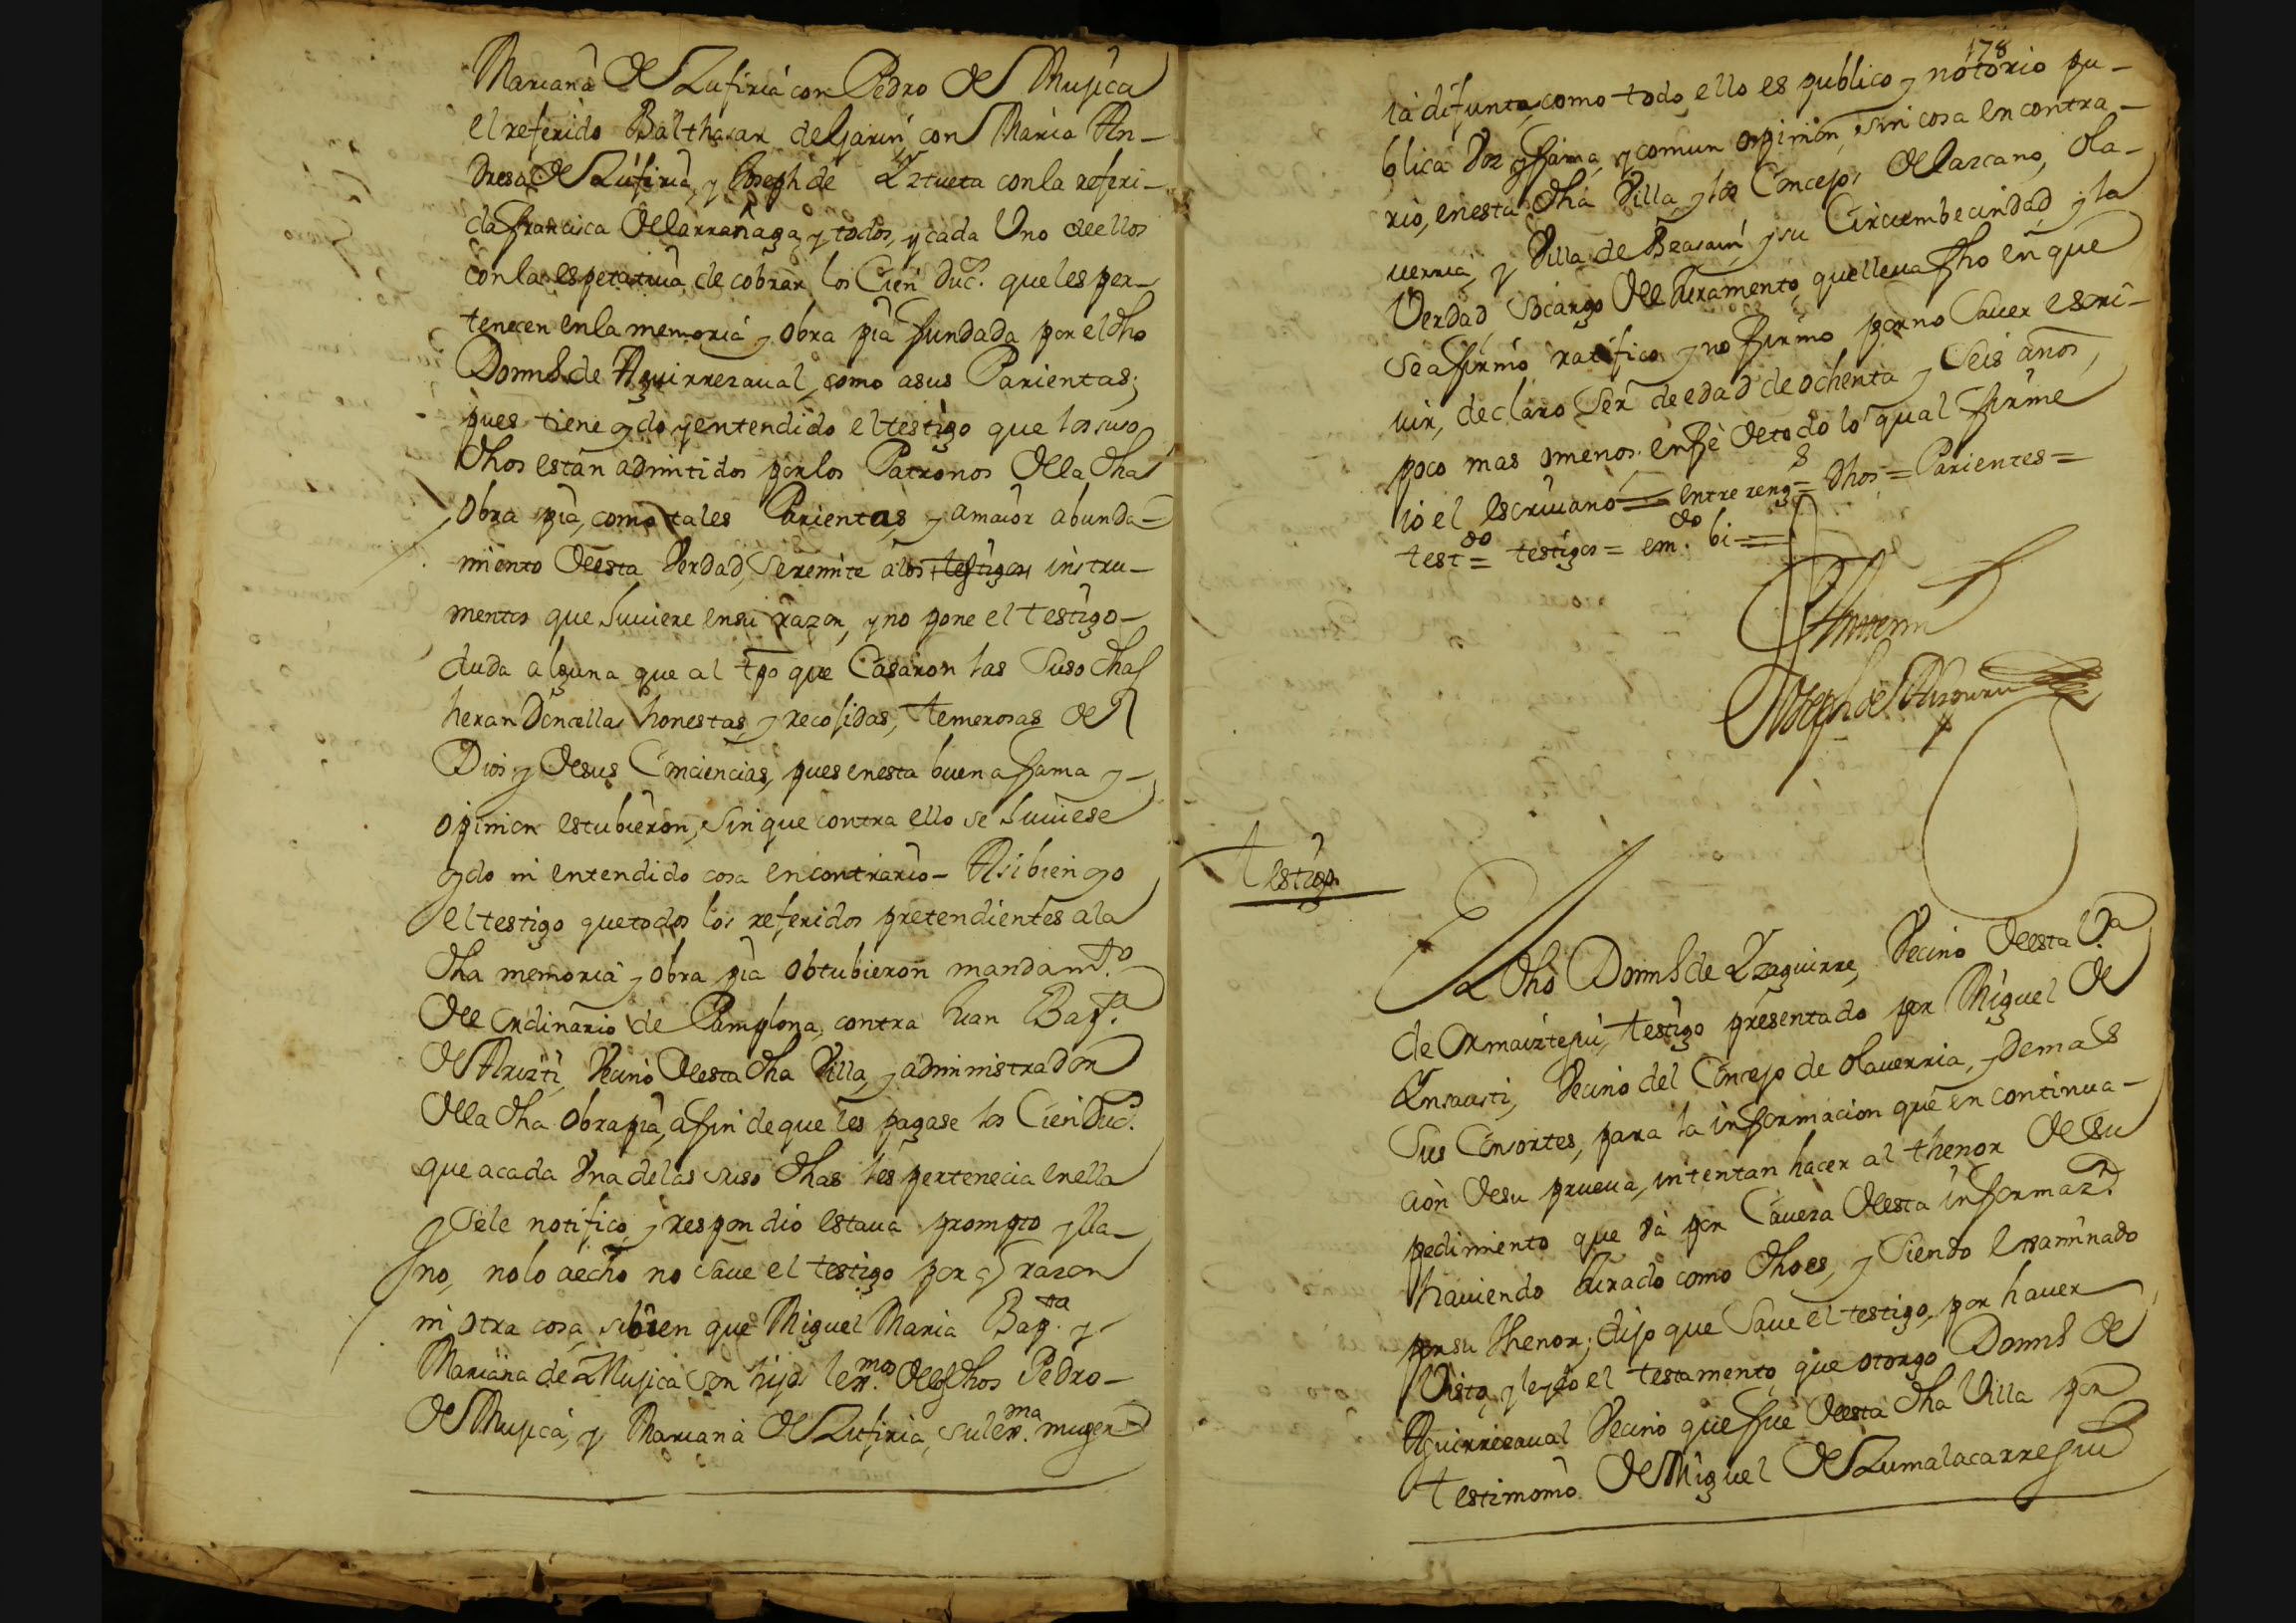 Mariana de Zufiria con Pedro de Mugica
el referido Balthasar de Garin, con Maria An-
dresa de Zufiria, y Joseph de Yztueta con la referi-
da francisca de Larranaga y todos, y cada Uno de ellos
con la espetativa de cobrar los Cien Duc.s que les per-
tenecen en la memoria y obra pia fundada por el dho
Doms de Aguirrezaval, como a sus Parientas;
pues tiene oydo, y entendido el testigo que los suso
dhos están admitidos por los Patronos de la dha
obra pia, como tales Parientas, y a maior abunda-
miento de esta Verdad, se remite a los testigos instru-
mentos que huuiere en su razon, y no pone el testigo-
duda alguna que al tpo que Casaron las Suso dhas
heran Doncellas honestas, y recogidas, temerosas de
Dios y de sus Conciencias, pues en esta buena fama y-
opinion estubieron, sin que contra ello se huuiese
oydo ni entendido cosa en contrario- Asi bien oyo
el testigo que todos los referidos pretendientes a la
dha memoria y obra pia obtubieron mandam.to
del ordinario de Pamplona, contra Juan Bap.ta
de Arizti, Vecino de esta dha Villa y administrador
de la dha obra pia, a fin de que les pagase los Cien Duc.s
que a cada Vna de las suso dhas les pertenecia en ella
y se le notifico, y respondió estaua prompto y lla-
no, no lo a echo no saue el testigo por q razon
ni otra cosa, si bien que Miguel Maria Bap.ta y
Mariana de Mugica son hijos lex.mos de los dhos Pedro-
de Mugica, y Mariana de Zufiria, su lex.ma muger
178
ia difunta, como todo ello es publico y notorio pu-
blica Voz y fama, y comun opinion, sin cosa en contra-
rio, en esta dha Villa, y los Concejos de Lazcano, Ola-
uerria, y Villa de Beasain, y su Circumbecindad y la
Verdad, So cargo del Juramento, que lleua fho en que
se afirmó ratifico y no firmo por no Sauer escri-
uir, declaro Ser de edad de ochenta y Seis años,
poco mas o menos. en fe de todo lo qual firme
io el escriuano = entre reng.s = dhos = Parientes =
test.do = testigos = em.do bi =
Joseph de
Testigo
El dho Doms de Yzaguirre, Vecino de esta V.a
de Ormaiztegui, testigo presentado por Miguel de
Ynsausti, Vecino del Concejo de Olauerria, y demas
Sus Consortes, para la informacion que en continua-
ción de su prueua, intentan hacer al thenor de su
pedimiento que vá por Cauera de esta informaz.n
hauiendo Jurado como dho es, y Siendo Examinado
por su thenor; dijo que Saue el testigo, por hauer
Visto, y leydo el testamento, que otorgo Doms de
Aguirrezaual Vecino que fue de esta dha Villa por
testimonio de Miguel de Zumalacarregui